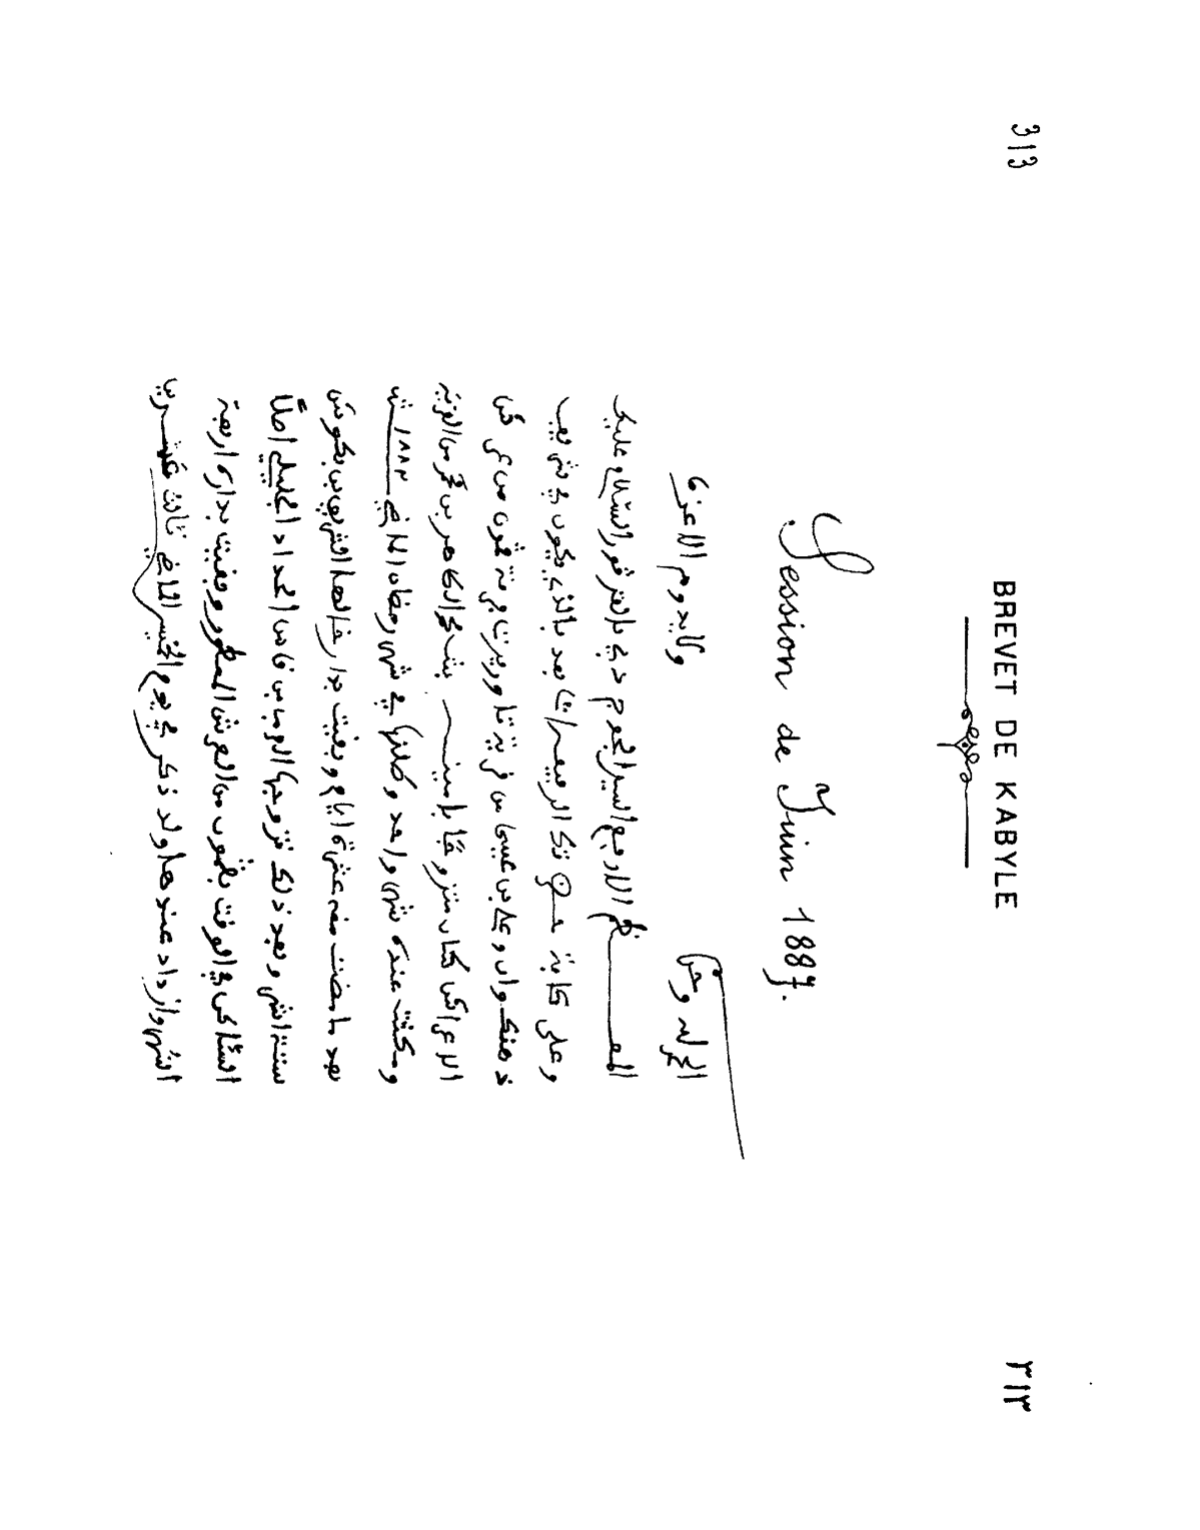 313 ٣١٣
BREVET DE KABYLE
Session de Juin 1887.
الحمد لله وحده ولا يدوم الا عزه
المعظم الارفع السيد الجوج دي السلام عليك
وعلى كافة اما بعد بالذي يكون في شريف
ذهنكم ان وعلي بن عيسى من قرية تاوريرت من عرش
كان متزوجا بامينة بنت محمد الطاهر بن محمد من القرية
ومكثت عنده شهر واحد وطلقها في شهر رمضان الماضي ١٨٨٣
بعد ما مضت منه عشرة ايام وبقيت بدار خالها الشريف بن بكوش
ستة اشهر وبعد ذلك تزوجها بن قاس احداد اصلا
الساكن في الوقت من العرش المسطور وبقيت بداره اربعة
اشهر وازداد عندها ولد ذكر في يوم الخميس الماضي ثالث عشرين